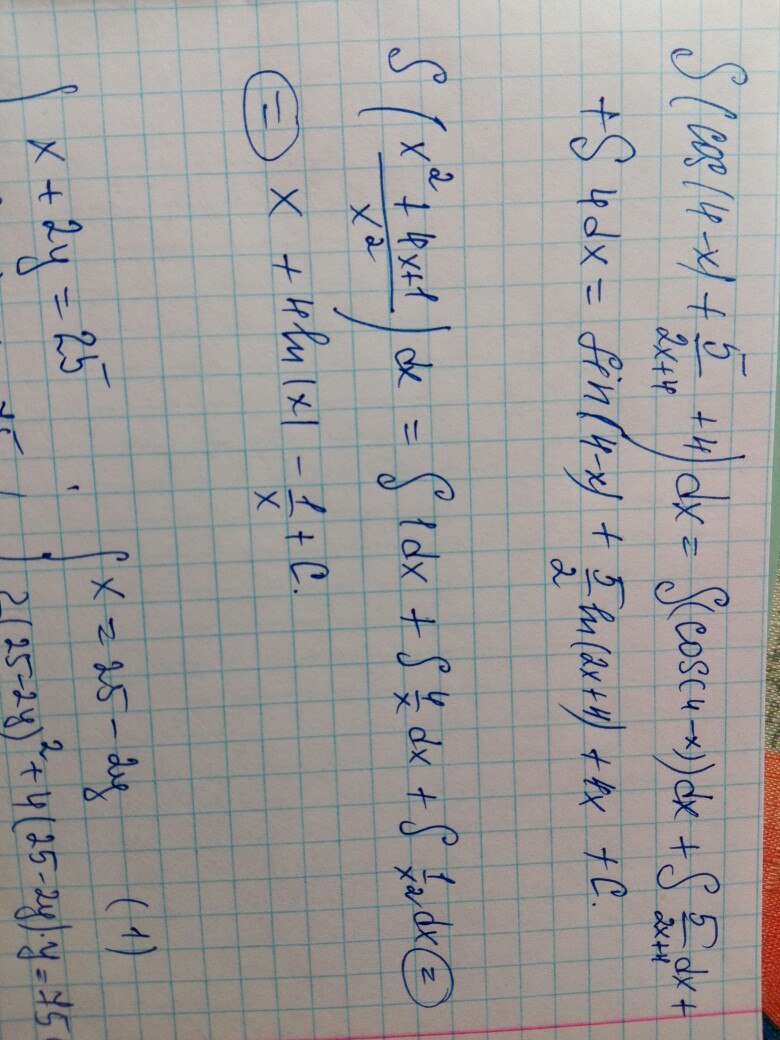 ∫(cos(4-x) + 5/(2x+4) + 4)dx = ∫(cos(4-x))dx + ∫ 5/(2x+4) dx +
+ ∫ 4dx = sin(4-x) + 5/2 ln(2x+4) + 4x + C.
∫((x² + 4x+1)/x²)dx = ∫ 1dx + ∫ 4/x dx + ∫ 1/x² dx =
= x + 4ln|x| - 1/x + C.
{ x + 2y = 25 { x = 25 - 2y (1)
2(25-2y)² + 4(25-2y)·y = 75